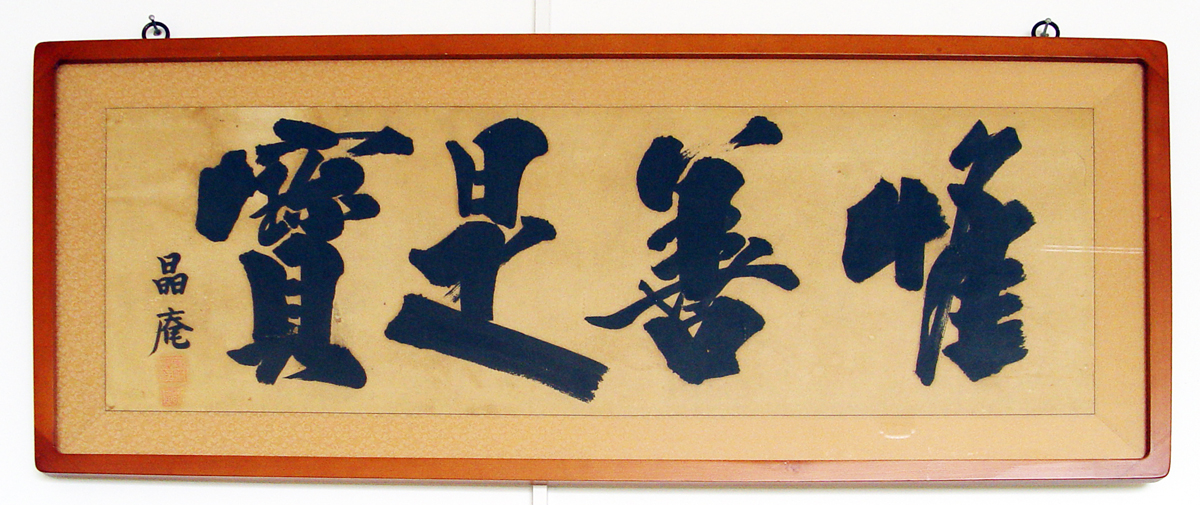 惟善是寶
晶庵